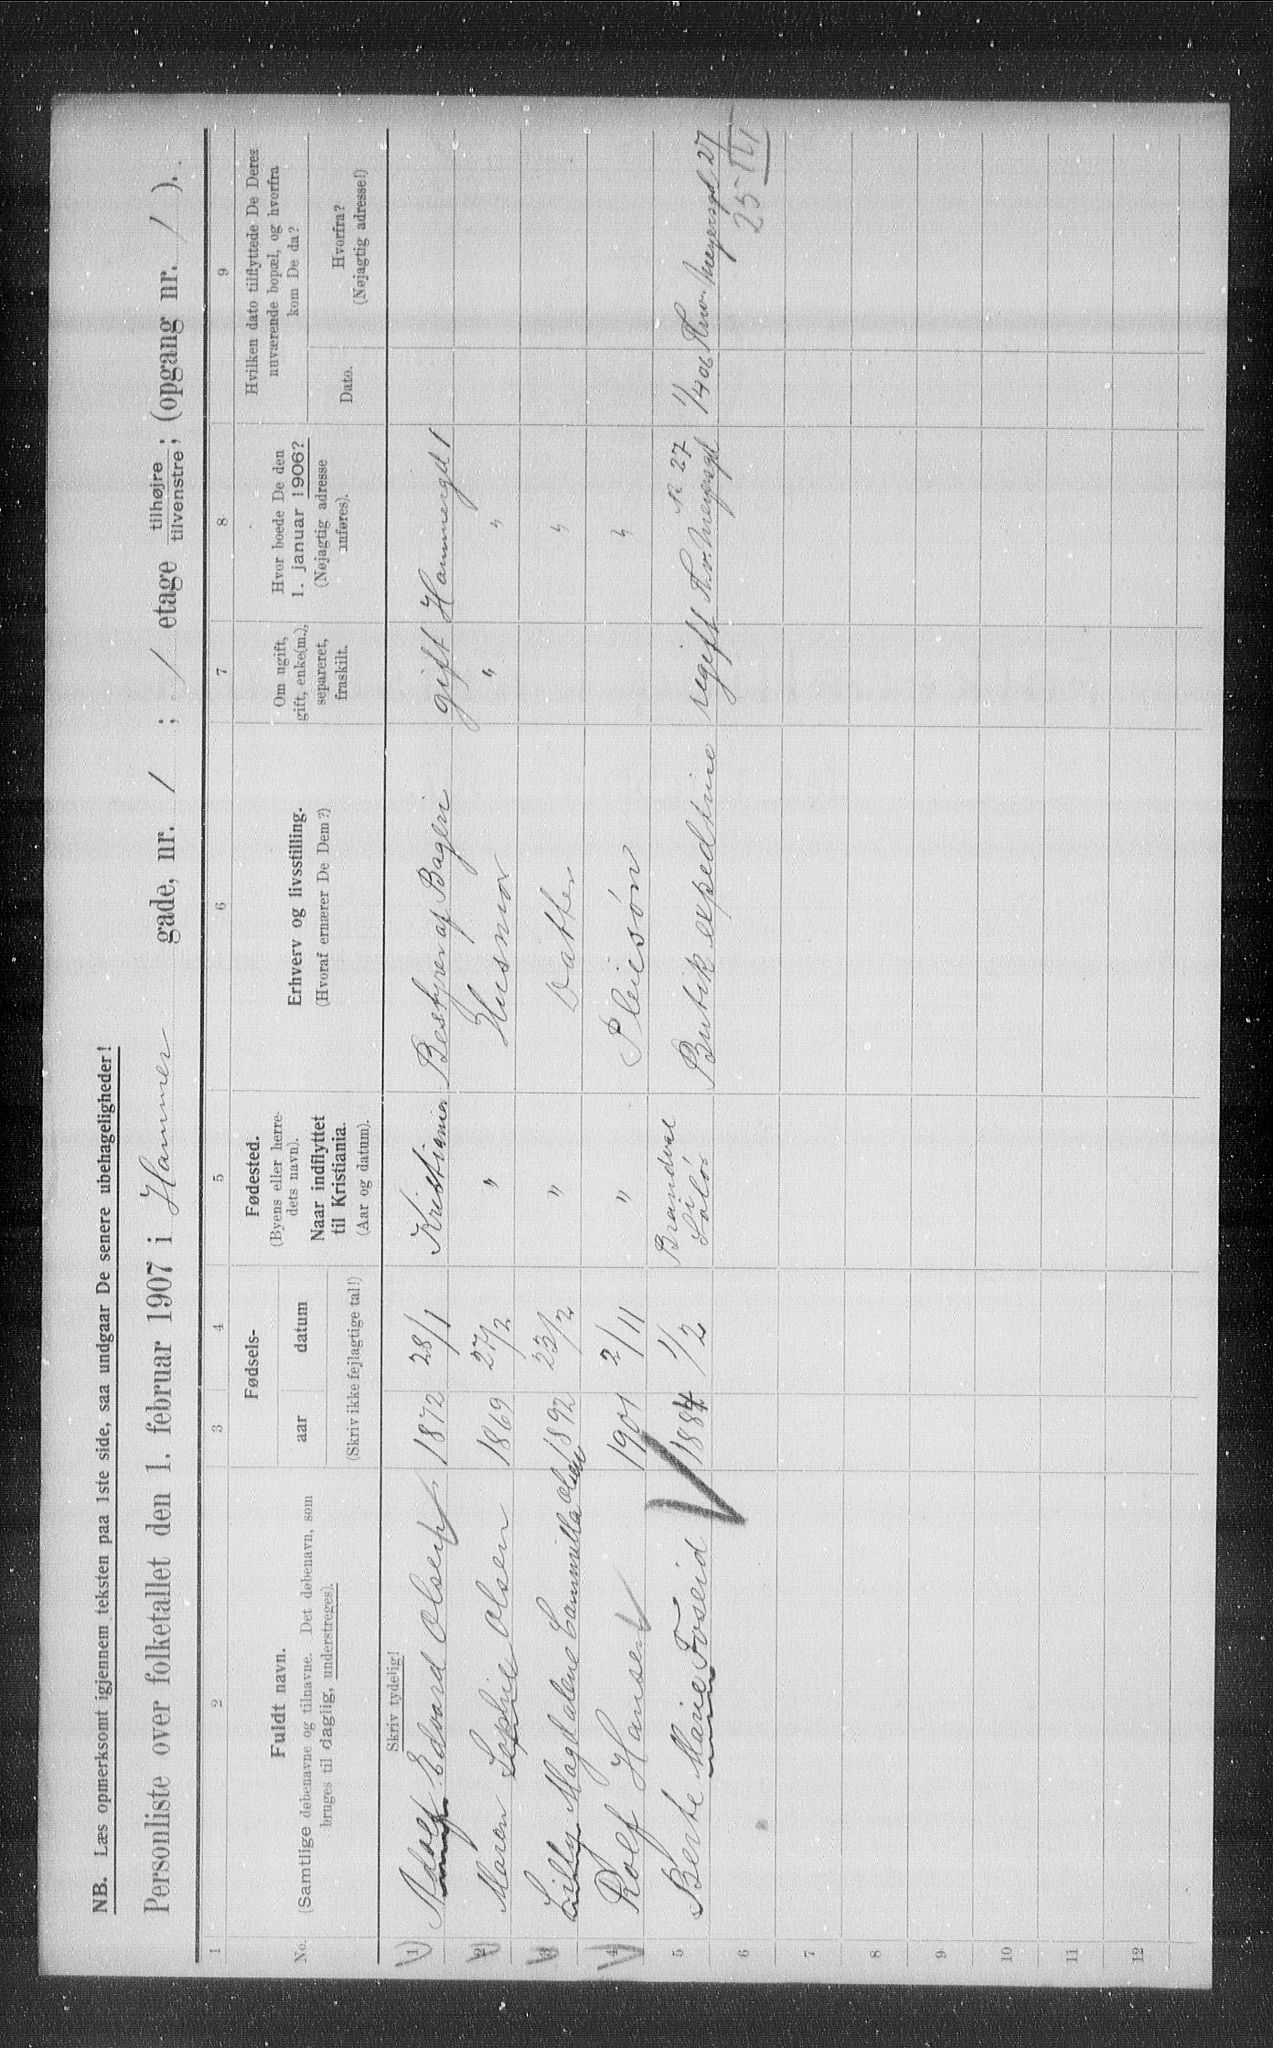 NB. Læs opmerksomt igjennem teksten paa 1ste side, saa undgaar De senere ubehageligheder!
Personliste over folketallet den 1. februar 1907 i Hammer gade, nr. 1 ; 1 etage tilhøjre tilvenstre; (opgang nr. 1 ).
1 2 3 4 5 6 7 8 9
No.
Fuldt navn.
(Samtlige døbenavne og tilnavne. Det døbenavn, som
bruges til daglig, understreges).
Fødsels-
aar datum
(Skriv ikke fejlagtige tal!)
Fødested.
(Byens eller herre-
dets navn).
Naar indflyttet
til Kristiania.
(Aar og datum).
Erhverv og livsstilling.
(Hvoraf ernærer De Dem?)
Om ugift,
gift, enke(m.),
separeret,
fraskilt.
Hvor boede De den
1. januar 1906?
(Nøjagtig adresse
anføres).
Hvilken dato tilflyttede De Deres
nuværende bopæl, og hvorfra
kom De da?
Dato.
Hvorfra?
(Nøjagtig adresse!)
Skriv tydelig!
1 Adolf Edvard Olsen 1872 28/1 Kristiania Bestyrer af Bageri gift Hammergd 1
2 Maren Sophie Olsen 1869 27/2 " Husmor " "
3 Lilly Magdalene Cammilla Olsen 1892 23/2 " Datter "
4 Rolf Hansen 1901 2/11 " Pleiesøn "
5 Berte Marie Foseid 1884 1/2 Brandval i Solør Butik expedtrice ugift Thv. Meyersgd N 27 1/4 06 Thv. Meyersgd 27
6 25-14
7
8
9
10
11
12